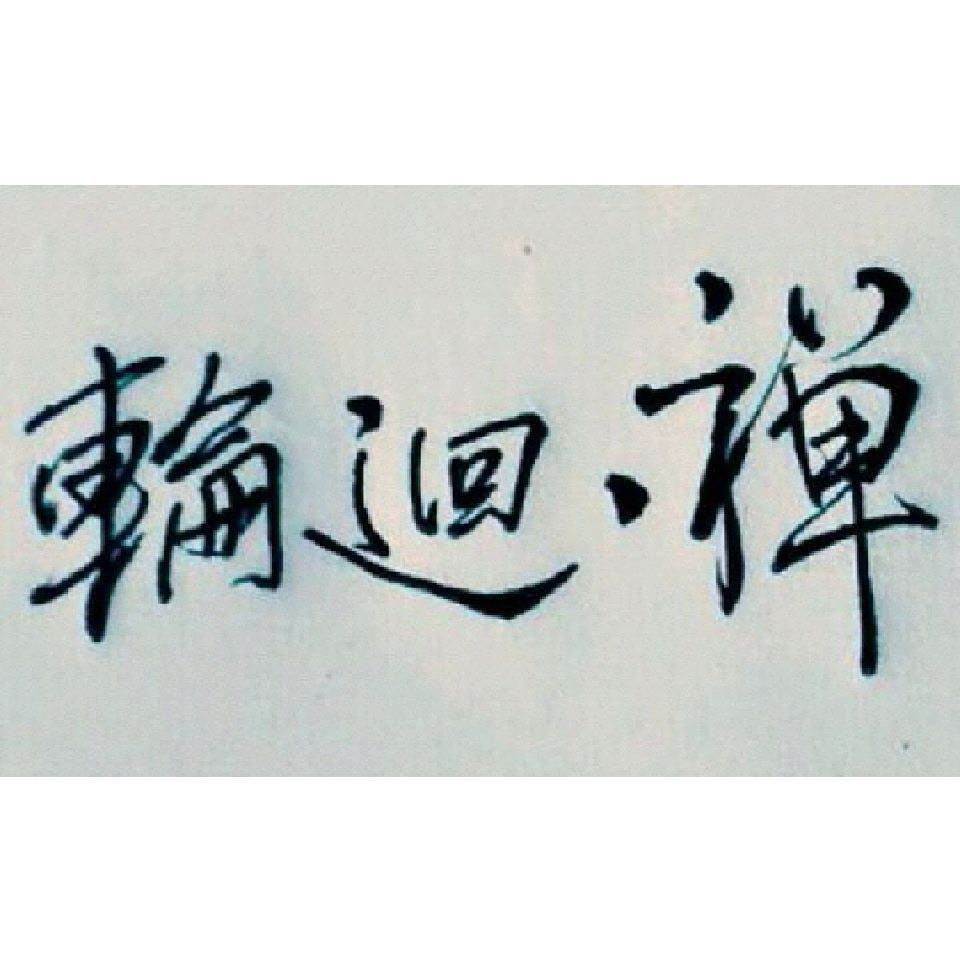 輪迴·禪